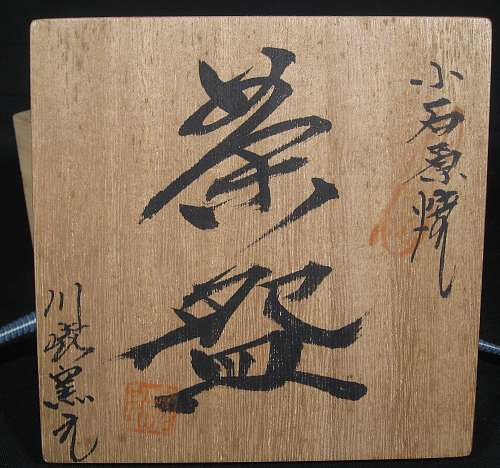 小石原焼
茶盌
川崎窯元